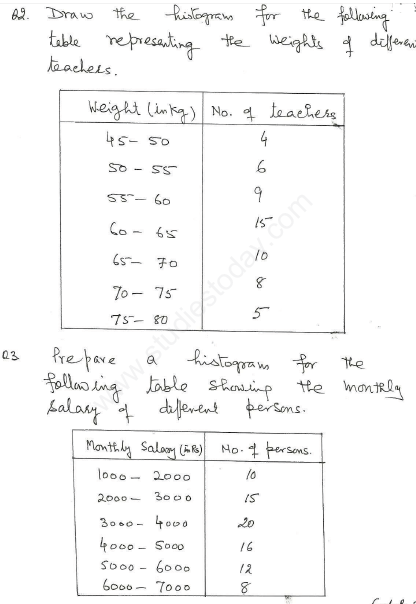 Q2. Draw the histogram for the following
table representing the weights of differen
teachers.
Weight (in kg) No. of teachers
45 - 50 4
50 - 55 6
55 - 60 9
60 - 65 15
65 - 70 10
70 - 75 8
75 - 80 5
www.studiestoday.com
Q3 Prepare a histogram for the
following table showing the monthly
salary of different persons.
Monthly Salary (in Rs) No. of persons.
1000 - 2000 10
2000 - 3000 15
3000 - 4000 20
4000 - 5000 16
5000 - 6000 12
6000 - 7000 8